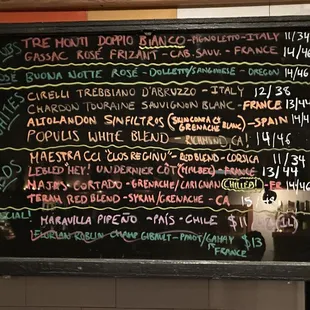 TRE MONTI DOPPIO BIANCO - PIGNOLETTO - ITALY 11/34
GASSAC ROSÉ FRIZANT - CAB. SAUV. - FRANCE 14/46
BUONA NOTTE ROSÉ - DOLCETTO/SANGIOVESE - OREGON 14/46
WHITES
CIRELLI TREBBIANO D'ABRUZZO - ITALY 12/38
CHARDON TOURAINE SAUVIGNON BLANC - FRANCE 13/44
ALTOLANDON SINFILTROS GRENACHE BLANC - SPAIN 14/4
POPULIS WHITE BLEND - CA! 14/46
REDS
MAESTRACCI "CLOS REGINU" - RED BLEND - CORSICA 11/34
LEBLED "HEY! UN DERNIER CÔT (MALBEC) - FRANCE 13/44
CORTADO - GRENACHE/CARIGNAN (CHILLED!) - FR 14/46
TERAH RED BLEND - SYRAH/GRENACHE - CA 15
MARAVILLA PIPEÑO - PAÍS - CHILE $11
FLORIAN ROBLIN CHAMP GIBAULT - PINOT/GAMAY $13
FRANCE